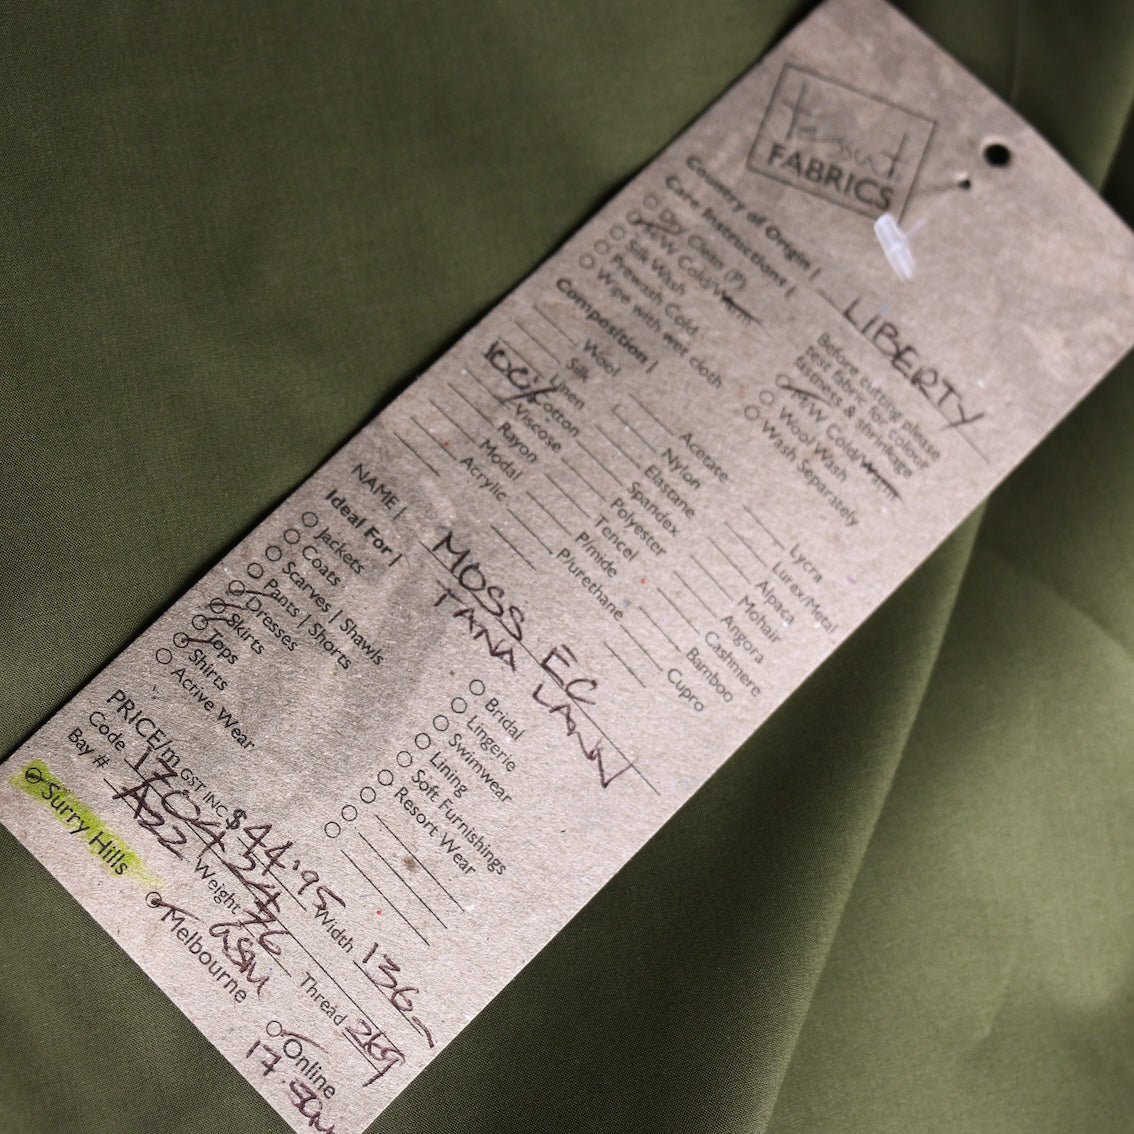 tessuti
FABRICS
Country of Origin | LIBERTY
Care Instructions |
Dry Clean (P)
M/W Cold/Warm
Silk Wash
Prewash Cold
Wipe with wet cloth
Before cutting please
test fabric for colour
fastness & shrinkage
M/W Cold/Warm
Wool Wash
Wash Separately
Composition |
Wool
Silk
Linen
100% Cotton
Viscose
Rayon
Modal
Acrylic
Acetate
Nylon
Elastane
Spandex
Polyester
Tencel
P/mide
P/urethane
Lycra
Lurex/Metal
Alpaca
Mohair
Angora
Cashmere
Bamboo
Cupro
NAME | MOSS EC
TANA LAWN
Ideal For |
Jackets
Coats
Scarves | Shawls
Pants | Shorts
Dresses
Skirts
Tops
Shirts
Active Wear
Bridal
Lingerie
Swimwear
Lining
Soft Furnishings
Resort Wear
PRICE/m GST INC $44.95 Width 136
Code
Bay # A22 Weight GSM Thread 269
Surry Hills Melbourne Online
17.50m